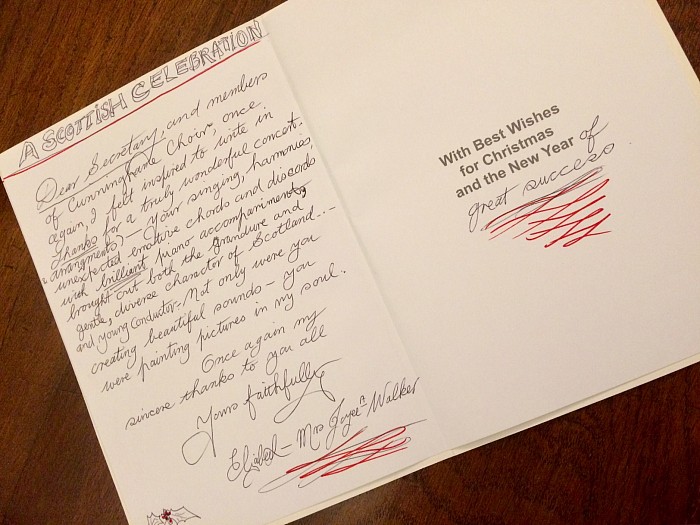 A SCOTTISH CELEBRATION
Dear Secretary, and members
of Cunninghame Choir, once
again, I felt inspired to write in
thanks for a truly wonderful concert.
- Your singing, harmonies,
& arrangments,
unexpected emotive chords and discords
with brillient piano accompaniments,
brought out both the Grandure and
gentle, diverse character of Scotland..-
and young Conductor - Not only were you
creating beautiful sounds - you
were painting pictures in my soul.
Once again my
sincere thanks to you all
Yours faithfully
- Mrs Joyce A Walker
With Best Wishes
for Christmas
and the New Year of
great success